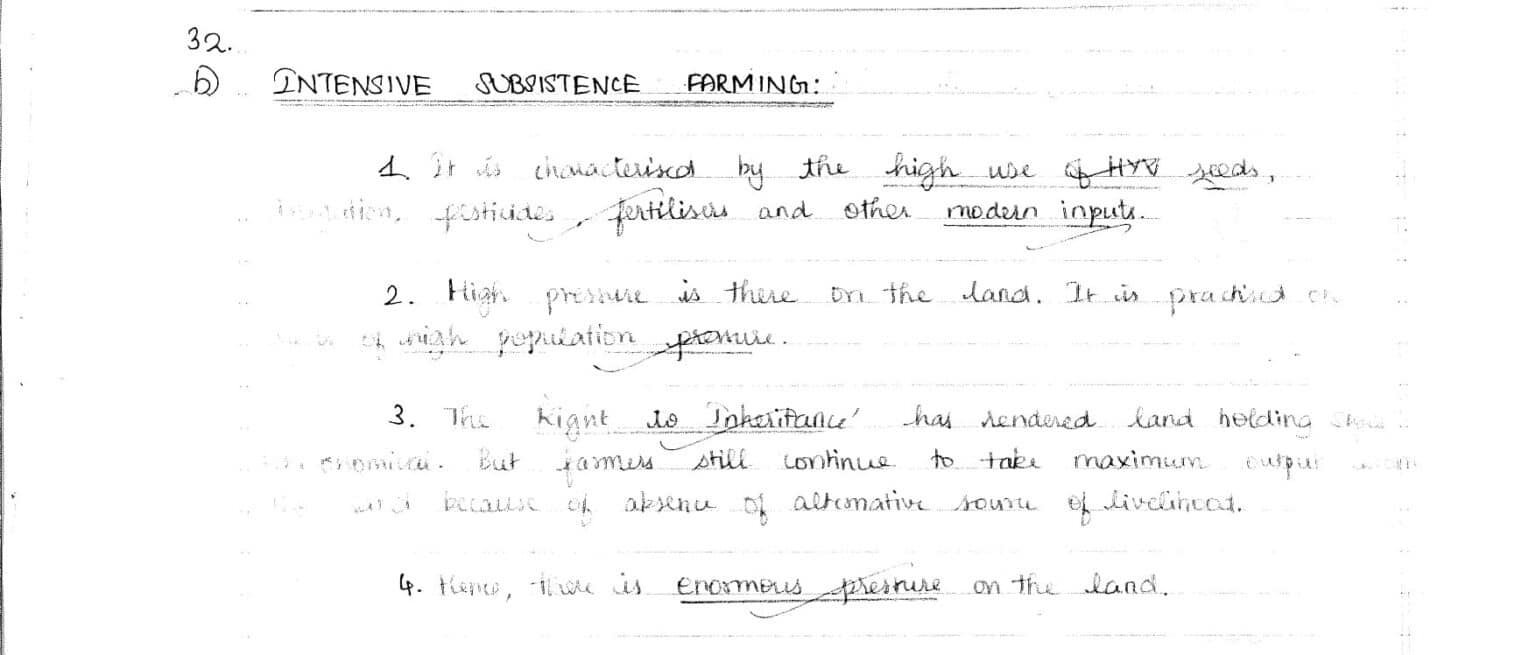 32.
b) INTENSIVE SUBSISTENCE FARMING:
1. It is characterised by the high use of HYV seeds,
pesticides, fertilisers and other modern inputs.
2. High pressure is there on the land. It is practised on
of high population pressure.
3. The Right to Inheritance' has rendered land holding
But farmers still continue to take maximum output
land because of absence of alternative source of livelihood.
4. Hence, there is enormous pressure on the land.